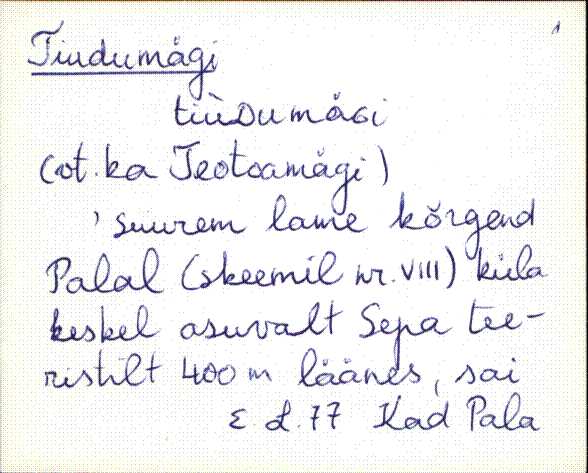 1
Tiudumägi
tiùDumäGi
(vt. ka Teotoamägi)
, suurem lame kõrgend
Palal (skeemil nr. VIII) küla
keskel asuvalt Sepa tee-
ristilt 400 m läänes, sai
E. L. 77 Kad Pala